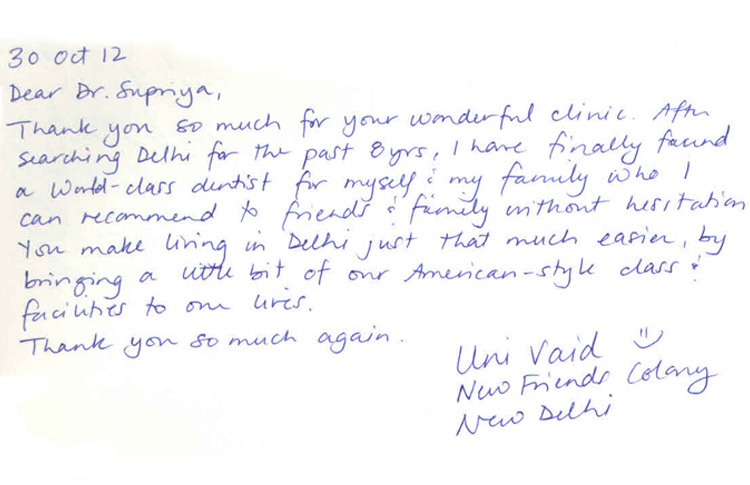 30 Oct 12
Dear Dr. Supriya,
Thank you so much for your wonderful clinic. After
searching Delhi for the past 8yrs, I have finally found
a World-class dentist for myself & my family who I
can recommend to friends & family without hesitation
You make living in Delhi just that much easier, by
bringing a little bit of our American-style class &
facilities to our lives.
Thank you so much again.
Uni Vaid
New Friends Colony
New Delhi